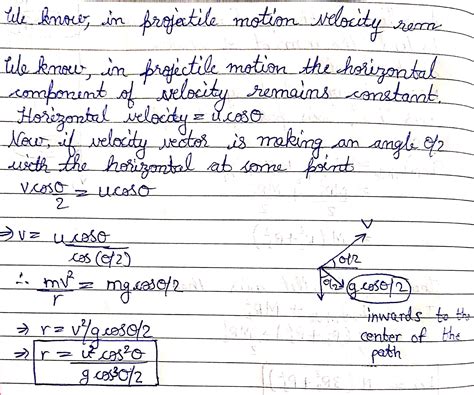 We know, in projectile motion velocity rem
We know, in projectile motion the horizontal
component of velocity remains constant.
Horizontal velocity = ucosθ
Now, if velocity vector is making an angle θ/2
with the horizontal at some point
vcosθ/2 = ucosθ
⇒ v = ucosθ/cos(θ/2)
∴ mv²/r = mgcosθ/2
⇒ r = v²/gcosθ/2
⇒ r = u²cos²θ/gcos³θ/2
v
θ/2
θ/2
gcosθ/2
inwards to the
center of the
path